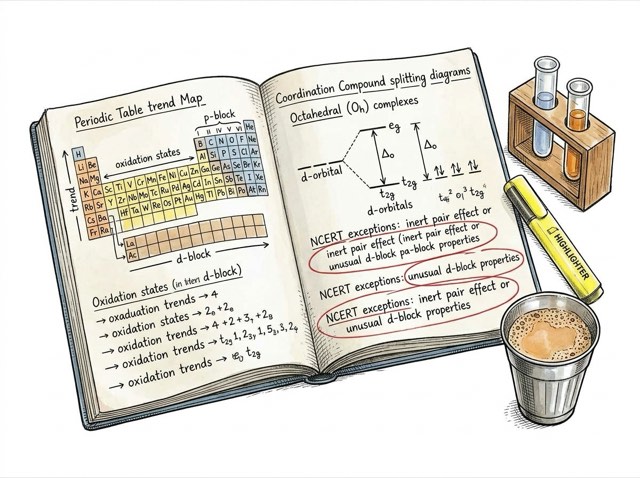 Periodic Table trend Map
p-block
I II IV V VI He
H B C N O F
Li Be oxidation states Al Si P S Cl
Na Mg
K Ca Sc Ti V Cr Mn Fe Ni Cu Zn
Rb Sr Y Zr Nb Mo Tc Ru Pd Ag Cd In Sn Sb Te I Xe
Cs Ba Hf Ta W Re Os Pt Au Hg Tl Pb Bi Po At Rn
Fr Ra
trend
La
Ac
d-block
Oxidation states (in d-block)
→ oxaduation trends → 4
→ oxidation states → 2₀ + 2₀
→ oxidation trends → 4 + 2 + 3, + 2₈
→ oxidation trends → t₂g 1, 2₃, 1, 5₂, 3, 2₄
→ oxidation trends → t₂g
Coordination Compound splitting diagrams
Octahedral (Oh) complexes
eg
Δ₀ Δ₀
d-orbital
t₂g t₂g
d-orbitals
NCERT exceptions: inert pair effect or
inert pair effect (inert pair effect or
unusual d-block pa-block properties
NCERT exceptions: unusual d-block properties
NCERT exceptions: inert pair effect or
unusual d-block properties
HIGHLIGHTER